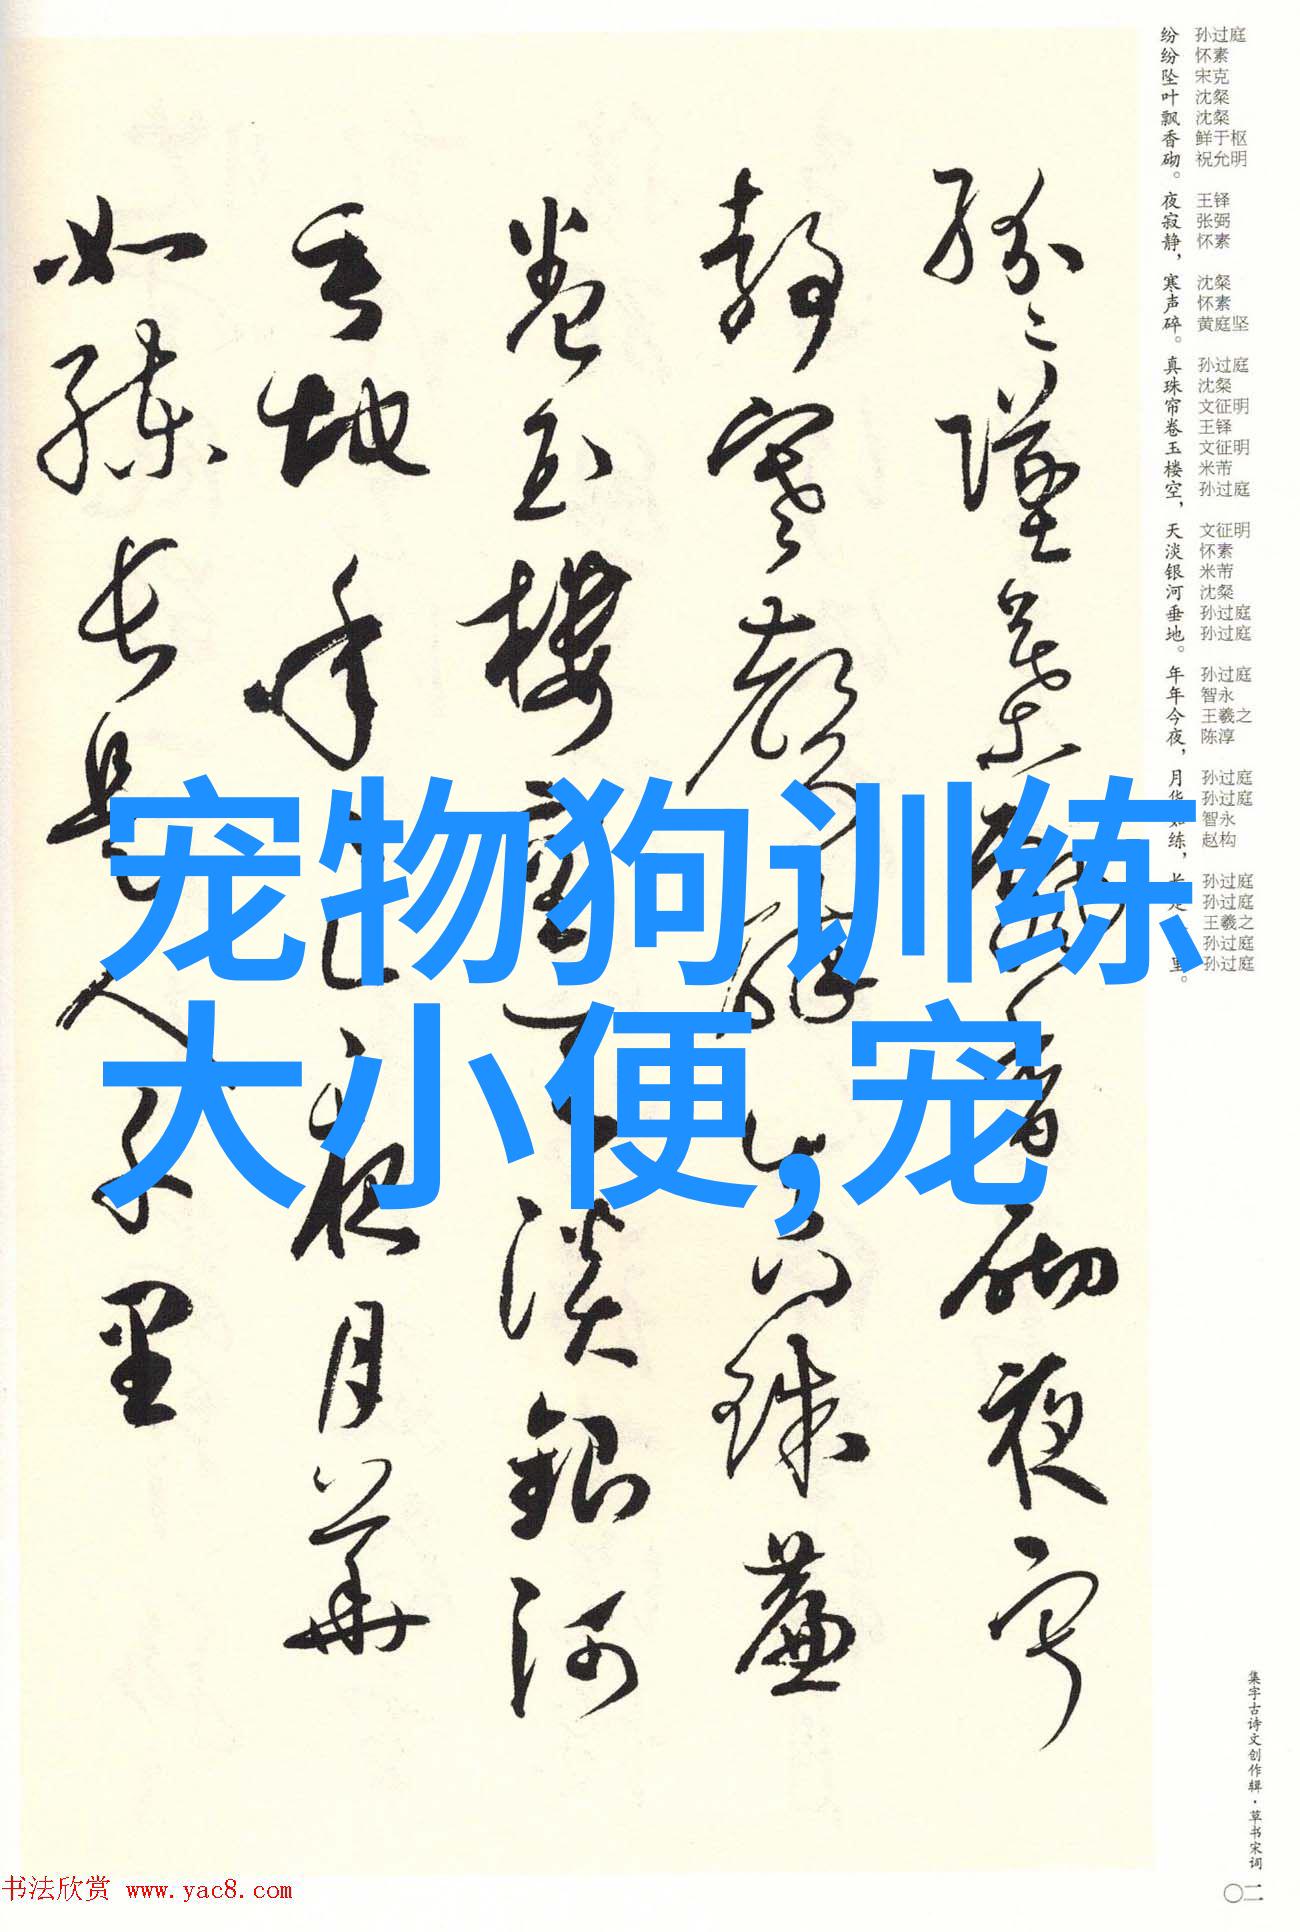 宠物狗训练
大小便,宠
纷纷坠叶飘香砌。夜寂静，寒声碎。真珠帘卷玉楼空，天淡银河垂地。年年今夜，月华如练，长是人千里。
孙过庭
怀素
宋克
沈粲
沈粲
鲜于枢
祝允明
王铎
张弼
怀素
沈粲
怀素
黄庭坚
孙过庭
沈粲
文征明
王铎
文征明
米芾
孙过庭
文征明
怀素
米芾
沈粲
孙过庭
孙过庭
孙过庭
智永
王羲之
陈淳
孙过庭
孙过庭
智永
赵构
孙过庭
孙过庭
王羲之
孙过庭
孙过庭
纷〻坠叶飘香砌夜寂
静寒声碎真珠帘
卷玉楼空天淡银河
垂地年〻今夜月华
如练长是人千里
集字古诗文创作辑·草书宋词
〇二
书法欣赏 www.yac8.com